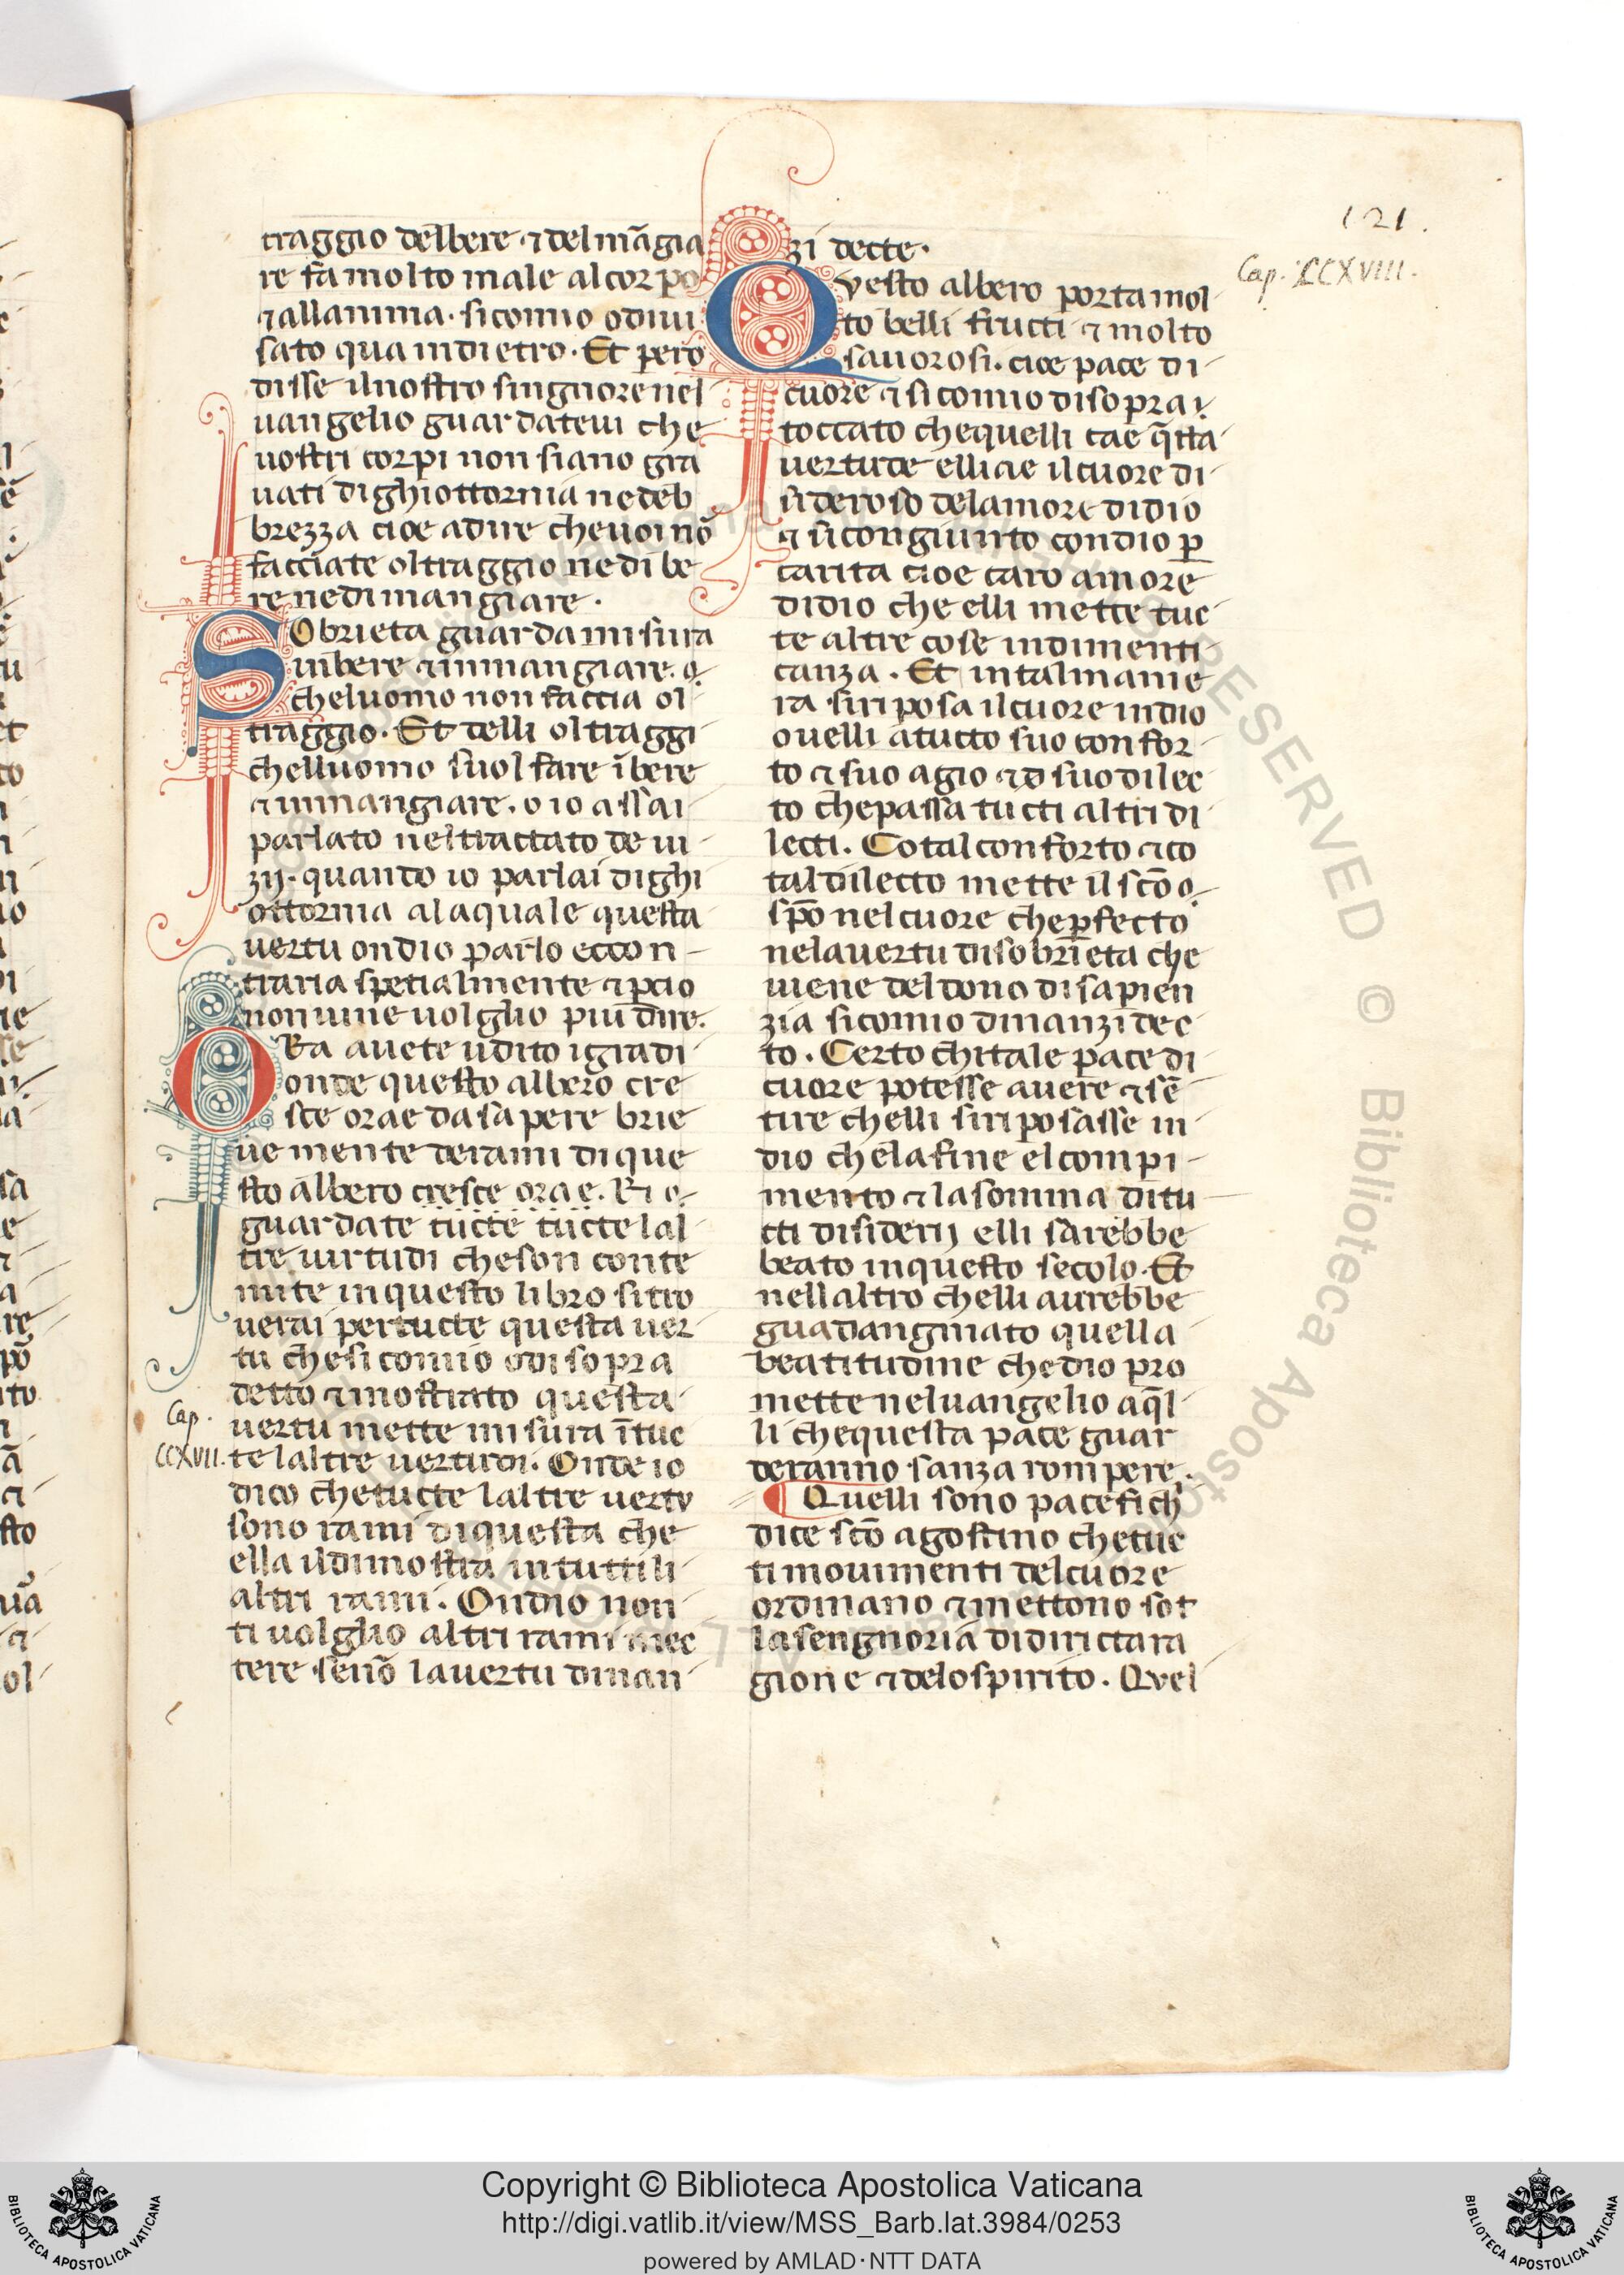 121.
traggio delbere · ⁊ delmãgia
re fa molto male alcorpo
⁊ allanima · siconmo odiui
sato qua indietro · Et pero
disse ilnostro singniorenel
uangelio guardateui che
uostri corpi non siano gra
uati dighiottornia nedeb
brezza cioe adire cheuoi nõ
facciate oltraggio nedi be
re nedimangiare ·
SObrieta guarda misura
inbere ⁊ inmangiare. o
cheluomo non faccia ol
traggio · Et delli oltraggi
chelluomo suol fare ĩbere
⁊ inmangiare. o io assai
parlato neltractato de ui
zij · quando io parlai dighi
ottornia alaquale questa
uertu ondio parlo eccon
traria spetialmente ⁊ pcio
non uine uolglio piu dire.
ORa auete udito igradi
onde questo albero cre
sce orae dasapere brie
ue mente derami di que
sto albero cresce orae. Ri o
guardate tucte tucte lal
tre uirtudi cheson conte
nute inquesto libro sitro
uerai pertucte questa uer
tu che siconmo odisopra
detto ⁊ mostrato questa
Cap.
CCXVII.
uertu mette misura ĩtuc
te laltre uertudi. Onde io
dico chetucte laltre uertv
sono rami diquesta che
ella sidimostra intuttili
altri rami. Ondio non
ti uolglio altri rami mec
tere senõ lauertu dinan
zi dette ·
Cap. CCXVIII.
Qvesto albero porta mol
to belli fructi ⁊ molto
sauorosi. cioe pace di
cuore ⁊ siconmo disopra i
toccato chequelli cae q̃sta
uertude ellicae ilcuore di
sideroso delamore didio
⁊ sicongiunto condio p̱
carita cioe caro amore
didio che elli mette tuc
te altre cose indimenti
canza · Et intalmanie
ra siriposa ilcuore indio
ouelli atucto suo confor
to ⁊ suo agio ⁊ o suo dilec
to chepassa tucti altri di
lecti. Cotal conforto ⁊ co
tal dilecto mette il scõ o
spõ nelcuore chep̱fecto
nelauertu disobrieta che
uiene deldono disapien
zia siconmo dinanzi dec
to. Certo chitale pace di
cuore potesse auere ⁊ sẽ
tire chelli siriposasse in
dio chelafine elcompi
mento ⁊ lasomma ditu
cti disiderij elli sarebbe
beato inquesto secolo · Et
nellaltro chelli aurebbe
guadangniato quella
beatitudine chedio pro
mette neluangelio aq̃l
li chequesta pace guar
deranno sanza rompere.
¶ Quelli sono pacefich̃
dice scõ agostino chetuc
ti mouimenti delcuore
ordinano ⁊ mettono sot
lasengnoria didirictara
gione ⁊ delospirito. Qvel
Copyright © Biblioteca Apostolica Vaticana
http://digi.vatlib.it/view/MSS_Barb.lat.3984/0253
powered by AMLAD·NTT DATA
BIBLIOTECA APOSTOLICA VATICANA
BIBLIOTECA APOSTOLICA VATICANA